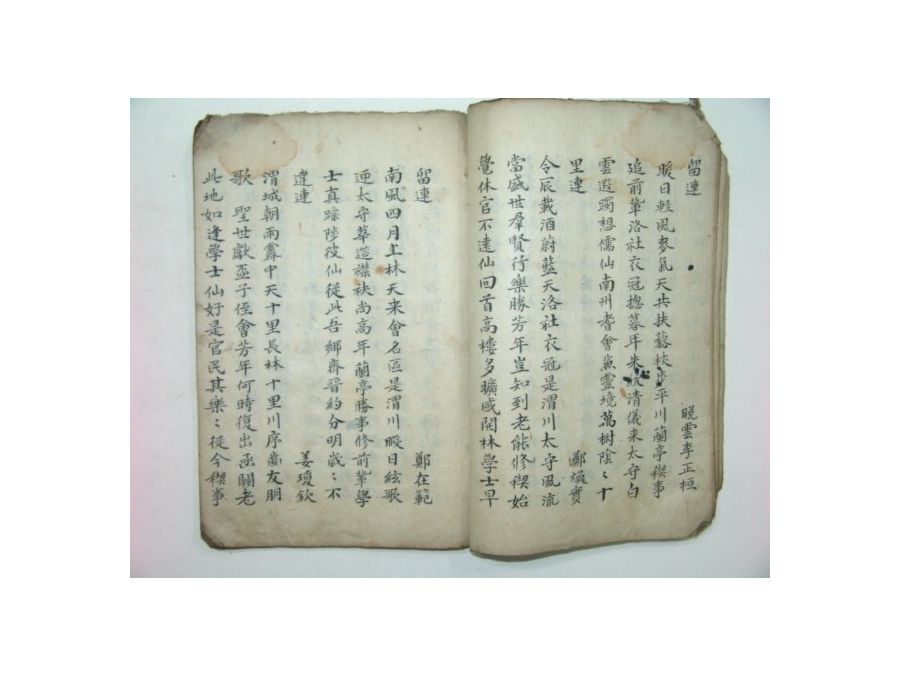 留連 晩雲李正桓
暖日輕風麥氣天共扶藜杖步平川蘭亭稧事
追前輩洛社衣冠摠暮年朱紱清儀来太守白
雲遐躅想儒仙南州耆會魚靈境萬樹陰〻十
里連 鄭煥實
令辰載酒蔚藍天洛社衣冠是渭川太守風流
當盛世羣賢行樂勝芳年豈知到老能修稧始
覺休官不遠仙回首高樓多曠感関林學士早
留連 鄭在範
南風四月上林天来會名區是渭川暇日絃歌
迎太守暮筵襟袂尚高年蘭亭勝事修前軰學
士真踪陟彼仙從此吾鄉齋晉約分明歲〻不
違連 姜瓊欽
渭城朝雨霽中天十里長林十里川序齒友朋
歌 聖世獻盃子侄會芳年何時復出凾關老
此地如逢學士仙好是官民其樂〻從今稧事